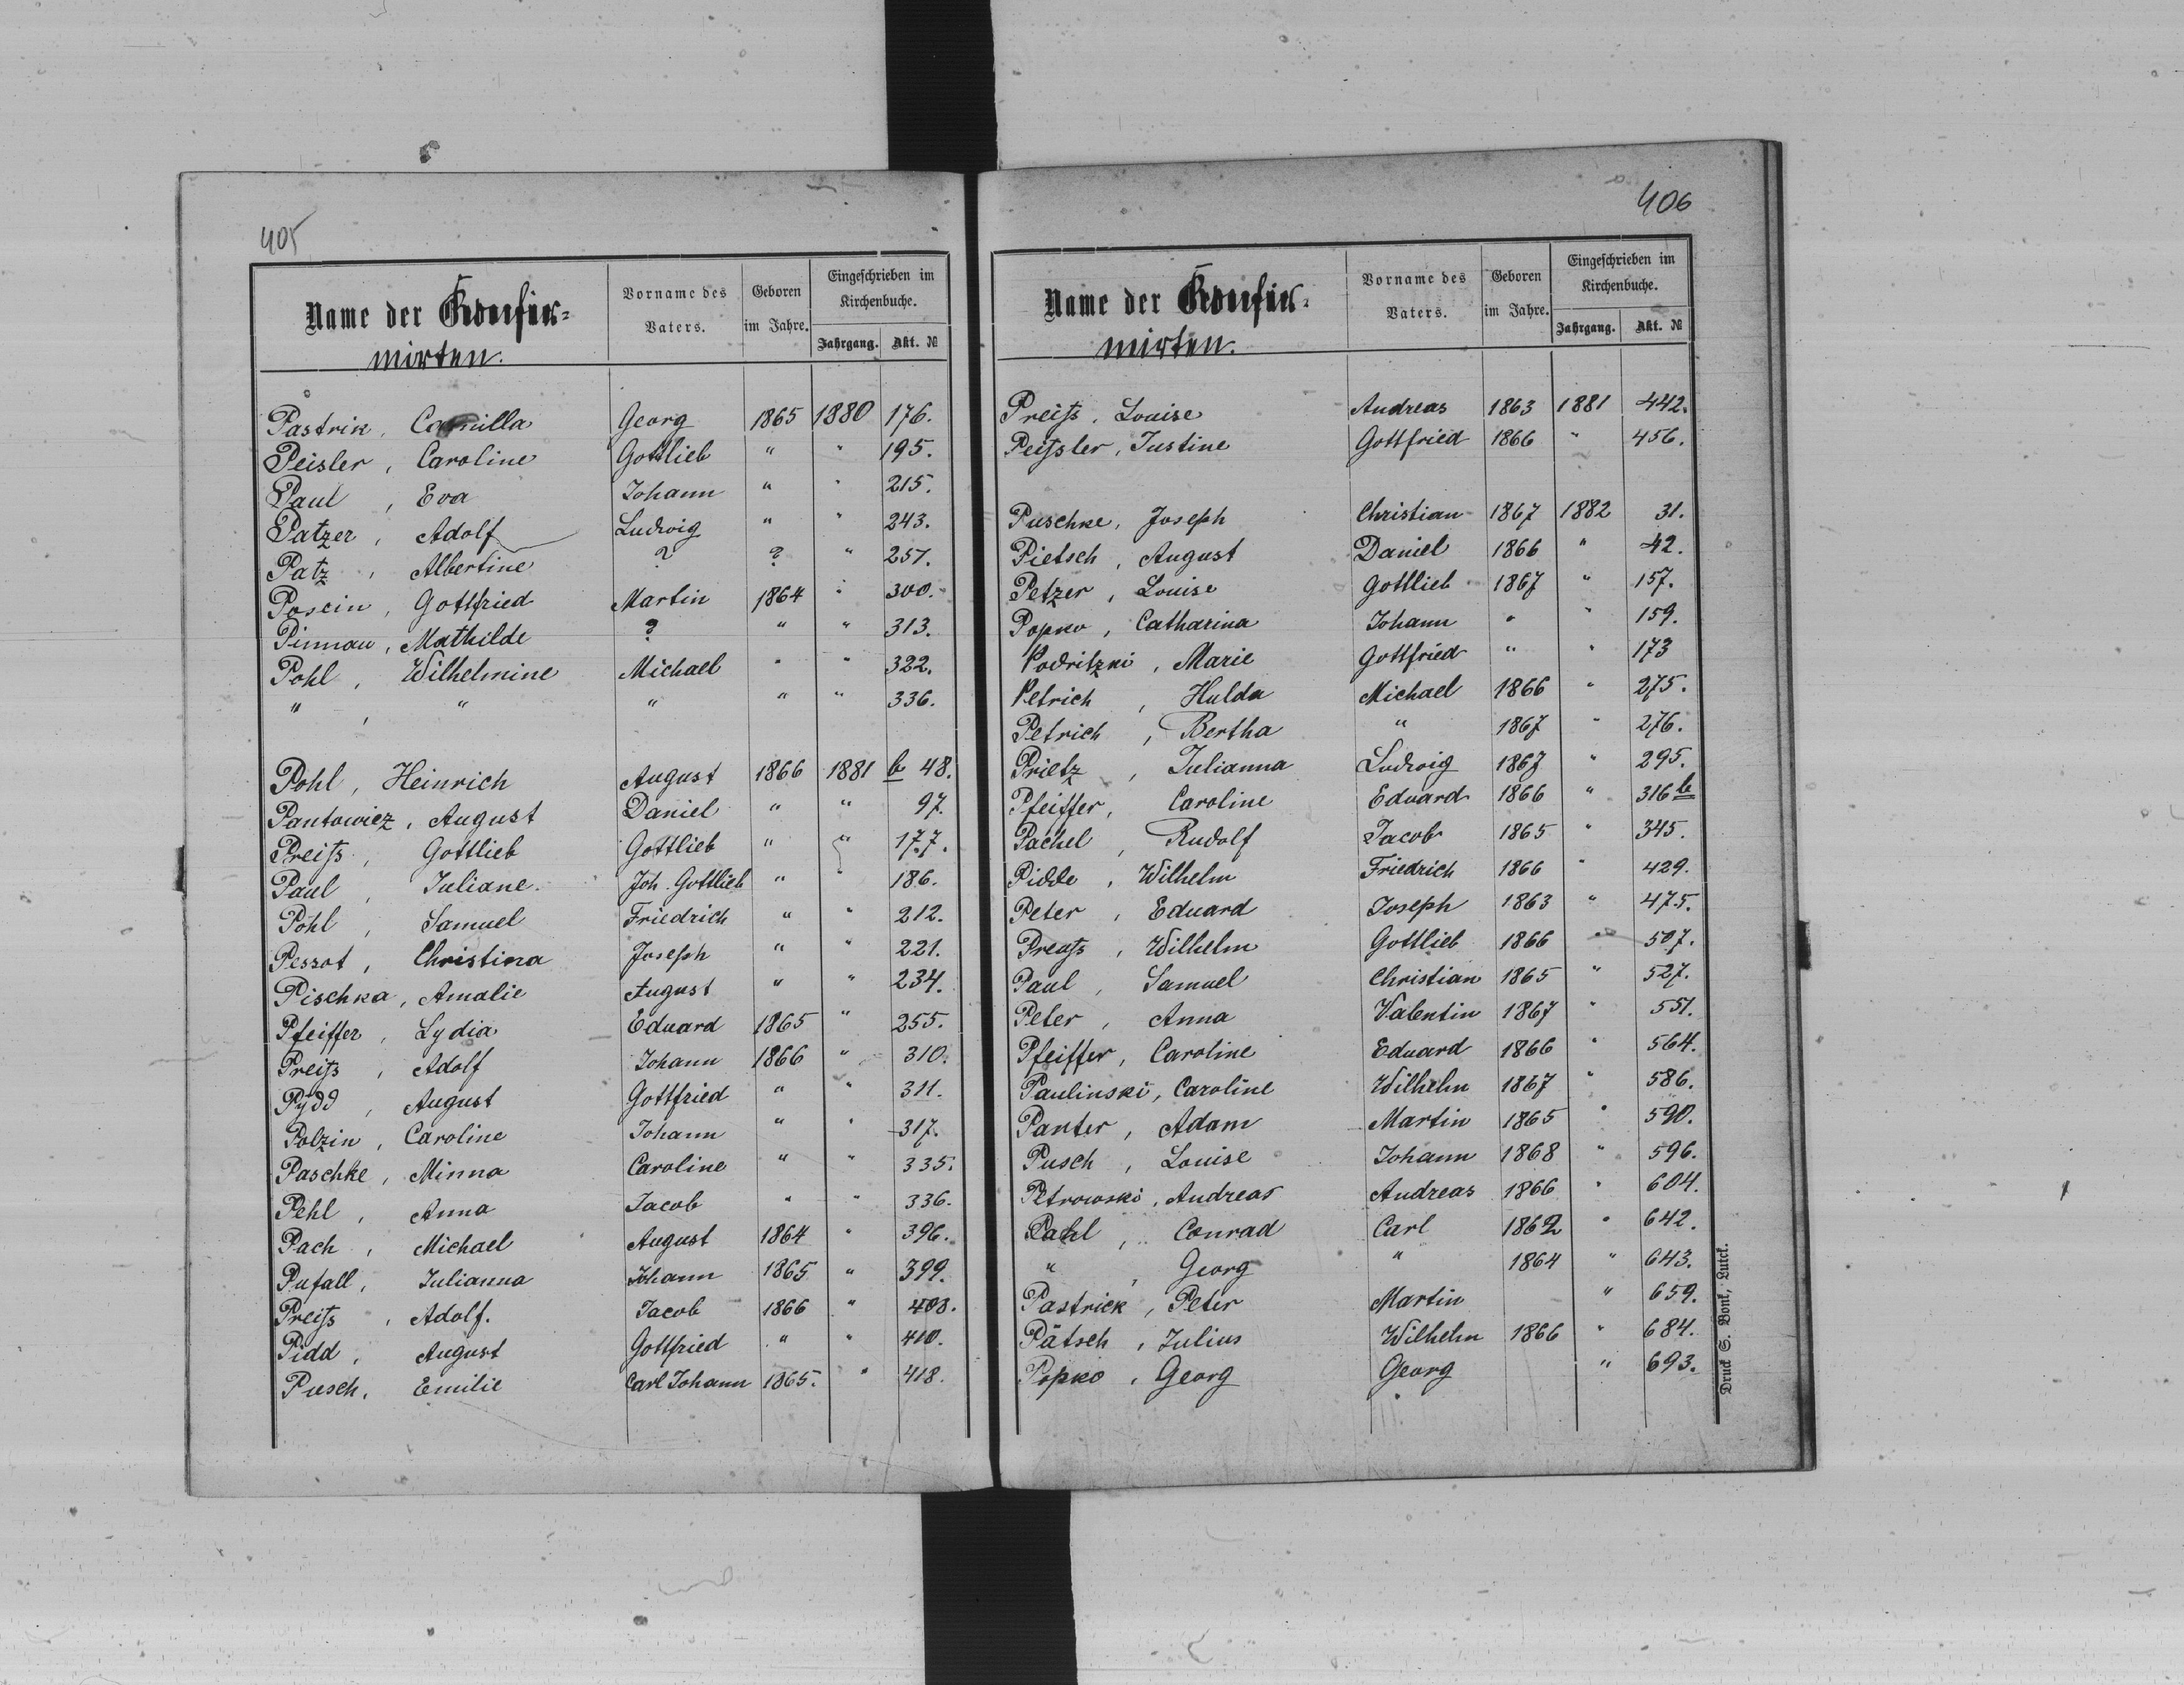 405
Name der Konfir=
mirten.
Vorname des
Vaters.
Geboren
im Jahre.
Eingeschrieben im
Kirchenbuche.
Jahrgang. Akt. №
Pastrik, Camilla Georg 1865 1880 176.
Peisler, Caroline Gottlieb " " 195.
Paul, Eva Johann " " 215.
Patzer, Adolf Ludwig " " 243.
Patz, Albertine ? ? " 257.
Posein, Gottfried Martin 1864 " 300.
Pinnau, Mathilde ? " " 313.
Pohl, Wilhelmine Michael " " 322.
", " " " " 336.
Pohl, Heinrich August 1866 1881 b 48.
Pantowicz, August Daniel " " 97.
Preiß, Gottlieb Gottlieb " " 177.
Paul, Juliane. Joh. Gottlieb " " 186.
Pohl, Samuel Friedrich " " 212.
Pessot, Christina Joseph " " 221.
Pischka, Amalie August " " 234.
Pfeiffer, Lydia Eduard 1865 " 255.
Preiß, Adolf Johann 1866 " 310.
Pydd, August Gottfried " " 311.
Polzin, Caroline Johann " " 317.
Paschke, Minna Caroline " " 335.
Pehl, Anna Jacob " " 336.
Pach, Michael August 1864 " 396.
Pufall, Julianna Johann 1865 " 399.
Preiß, Adolf. Jacob 1866 " 403.
Pidd, August Gottfried " " 410.
Pusch, Emilie Carl Johann 1865. " 418.
406
Name der Konfir=
mirten.
Vorname des
Vaters.
Geboren
im Jahre.
Eingeschrieben im
Kirchenbuche.
Jahrgang. Akt. №
Preiß, Louise Andreas 1863 1881 442.
Peißler, Justine Gottfried 1866 " 456.
Puschke, Joseph Christian 1867 1882 31.
Pietsch, August Daniel 1866 " 42.
Petzer, Louise Gottlieb 1867 " 157.
Popko, Catharina Johann " " 159.
Podritzki, Marie Gottfried " " 173
Petrich, Hulda Michael 1866 " 275.
Petrich, Bertha " 1867 " 276.
Prietz, Julianna Ludwig 1867 " 295.
Pfeiffer, Caroline Eduard 1866 " 316 b
Pachel, Rudolf Jacob 1865 " 345.
Pidde, Wilhelm Friedrich 1866 " 429.
Peter, Eduard Joseph 1863 " 475.
Preuß, Wilhelm Gottlieb 1866 " 507.
Paul, Samuel Christian 1865 " 527.
Peter, Anna Valentin 1867 " 551.
Pfeiffer, Caroline Eduard 1866 " 564.
Paulinski, Caroline Wilhelm 1867 " 586.
Panter, Adam Martin 1865 " 590.
Pusch, Louise Johann 1868 " 596.
Petrowski, Andreas Andreas 1866 " 604.
Pahl, Conrad Carl 1862 " 642.
", Georg " 1864 " 643.
Pastrick, Peter Martin " 659.
Pätsch, Julius Wilhelm 1866 " 684.
Popko, Georg Georg " 693.
Druck S. Bonk, Luck.